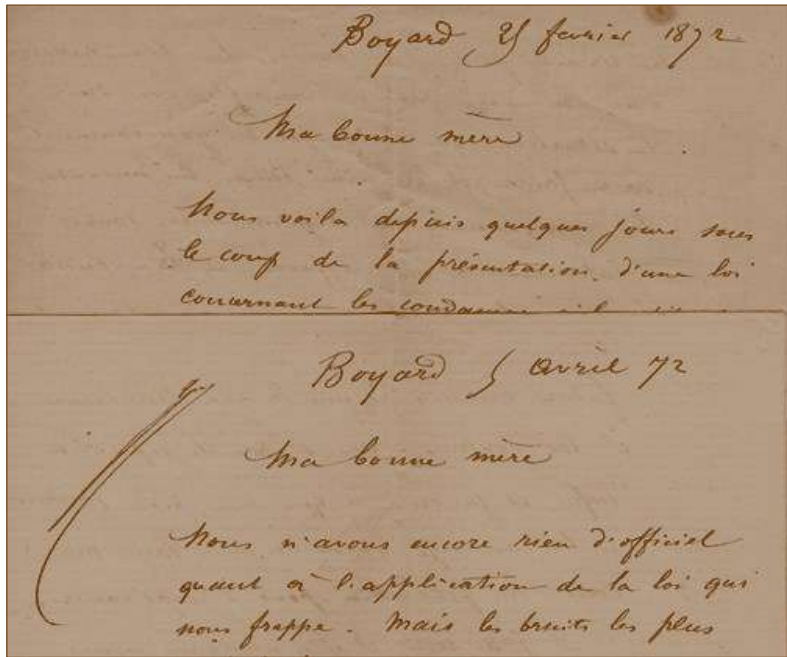 Boyard 25 fevrier 1872
Ma bonne mère
Nous voila depuis quelques jours sous
le coup de la présentation d'une loi
concernant les condamnés
Boyard 5 avril 72
Ma bonne mère
Nous n'avons encore rien d'officiel
quant à l'application de la loi qui
nous frappe. Mais les bruits les plus